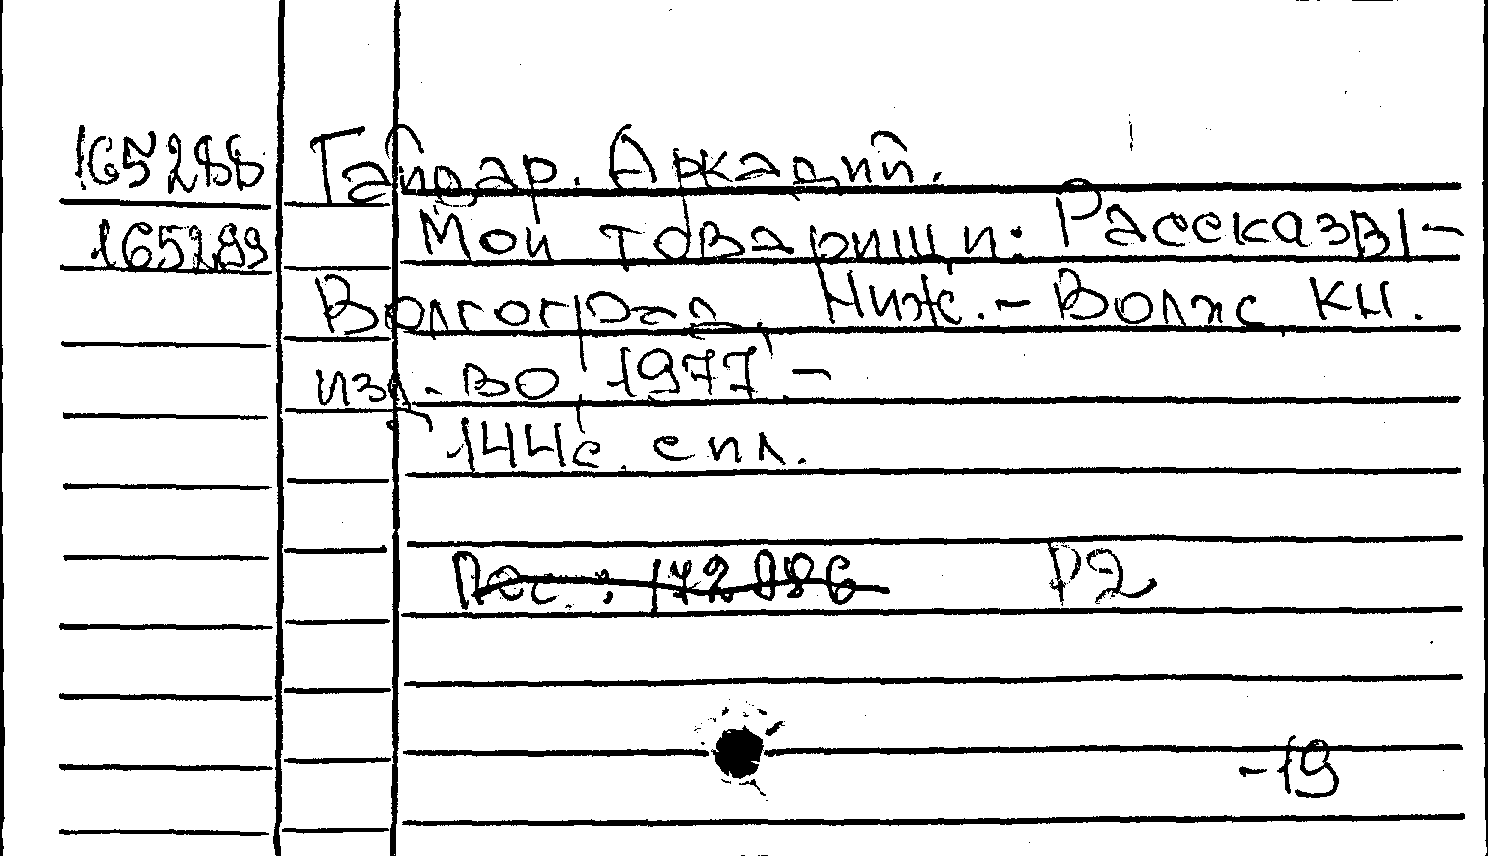 165288 Гайдар. Аркадий.
165299 Мои товарищи: Рассказы -
Волгоград, Ниж. - Волж. кн.
изд-во, 1977. -
144с. с ил.
172086 Р2
-19